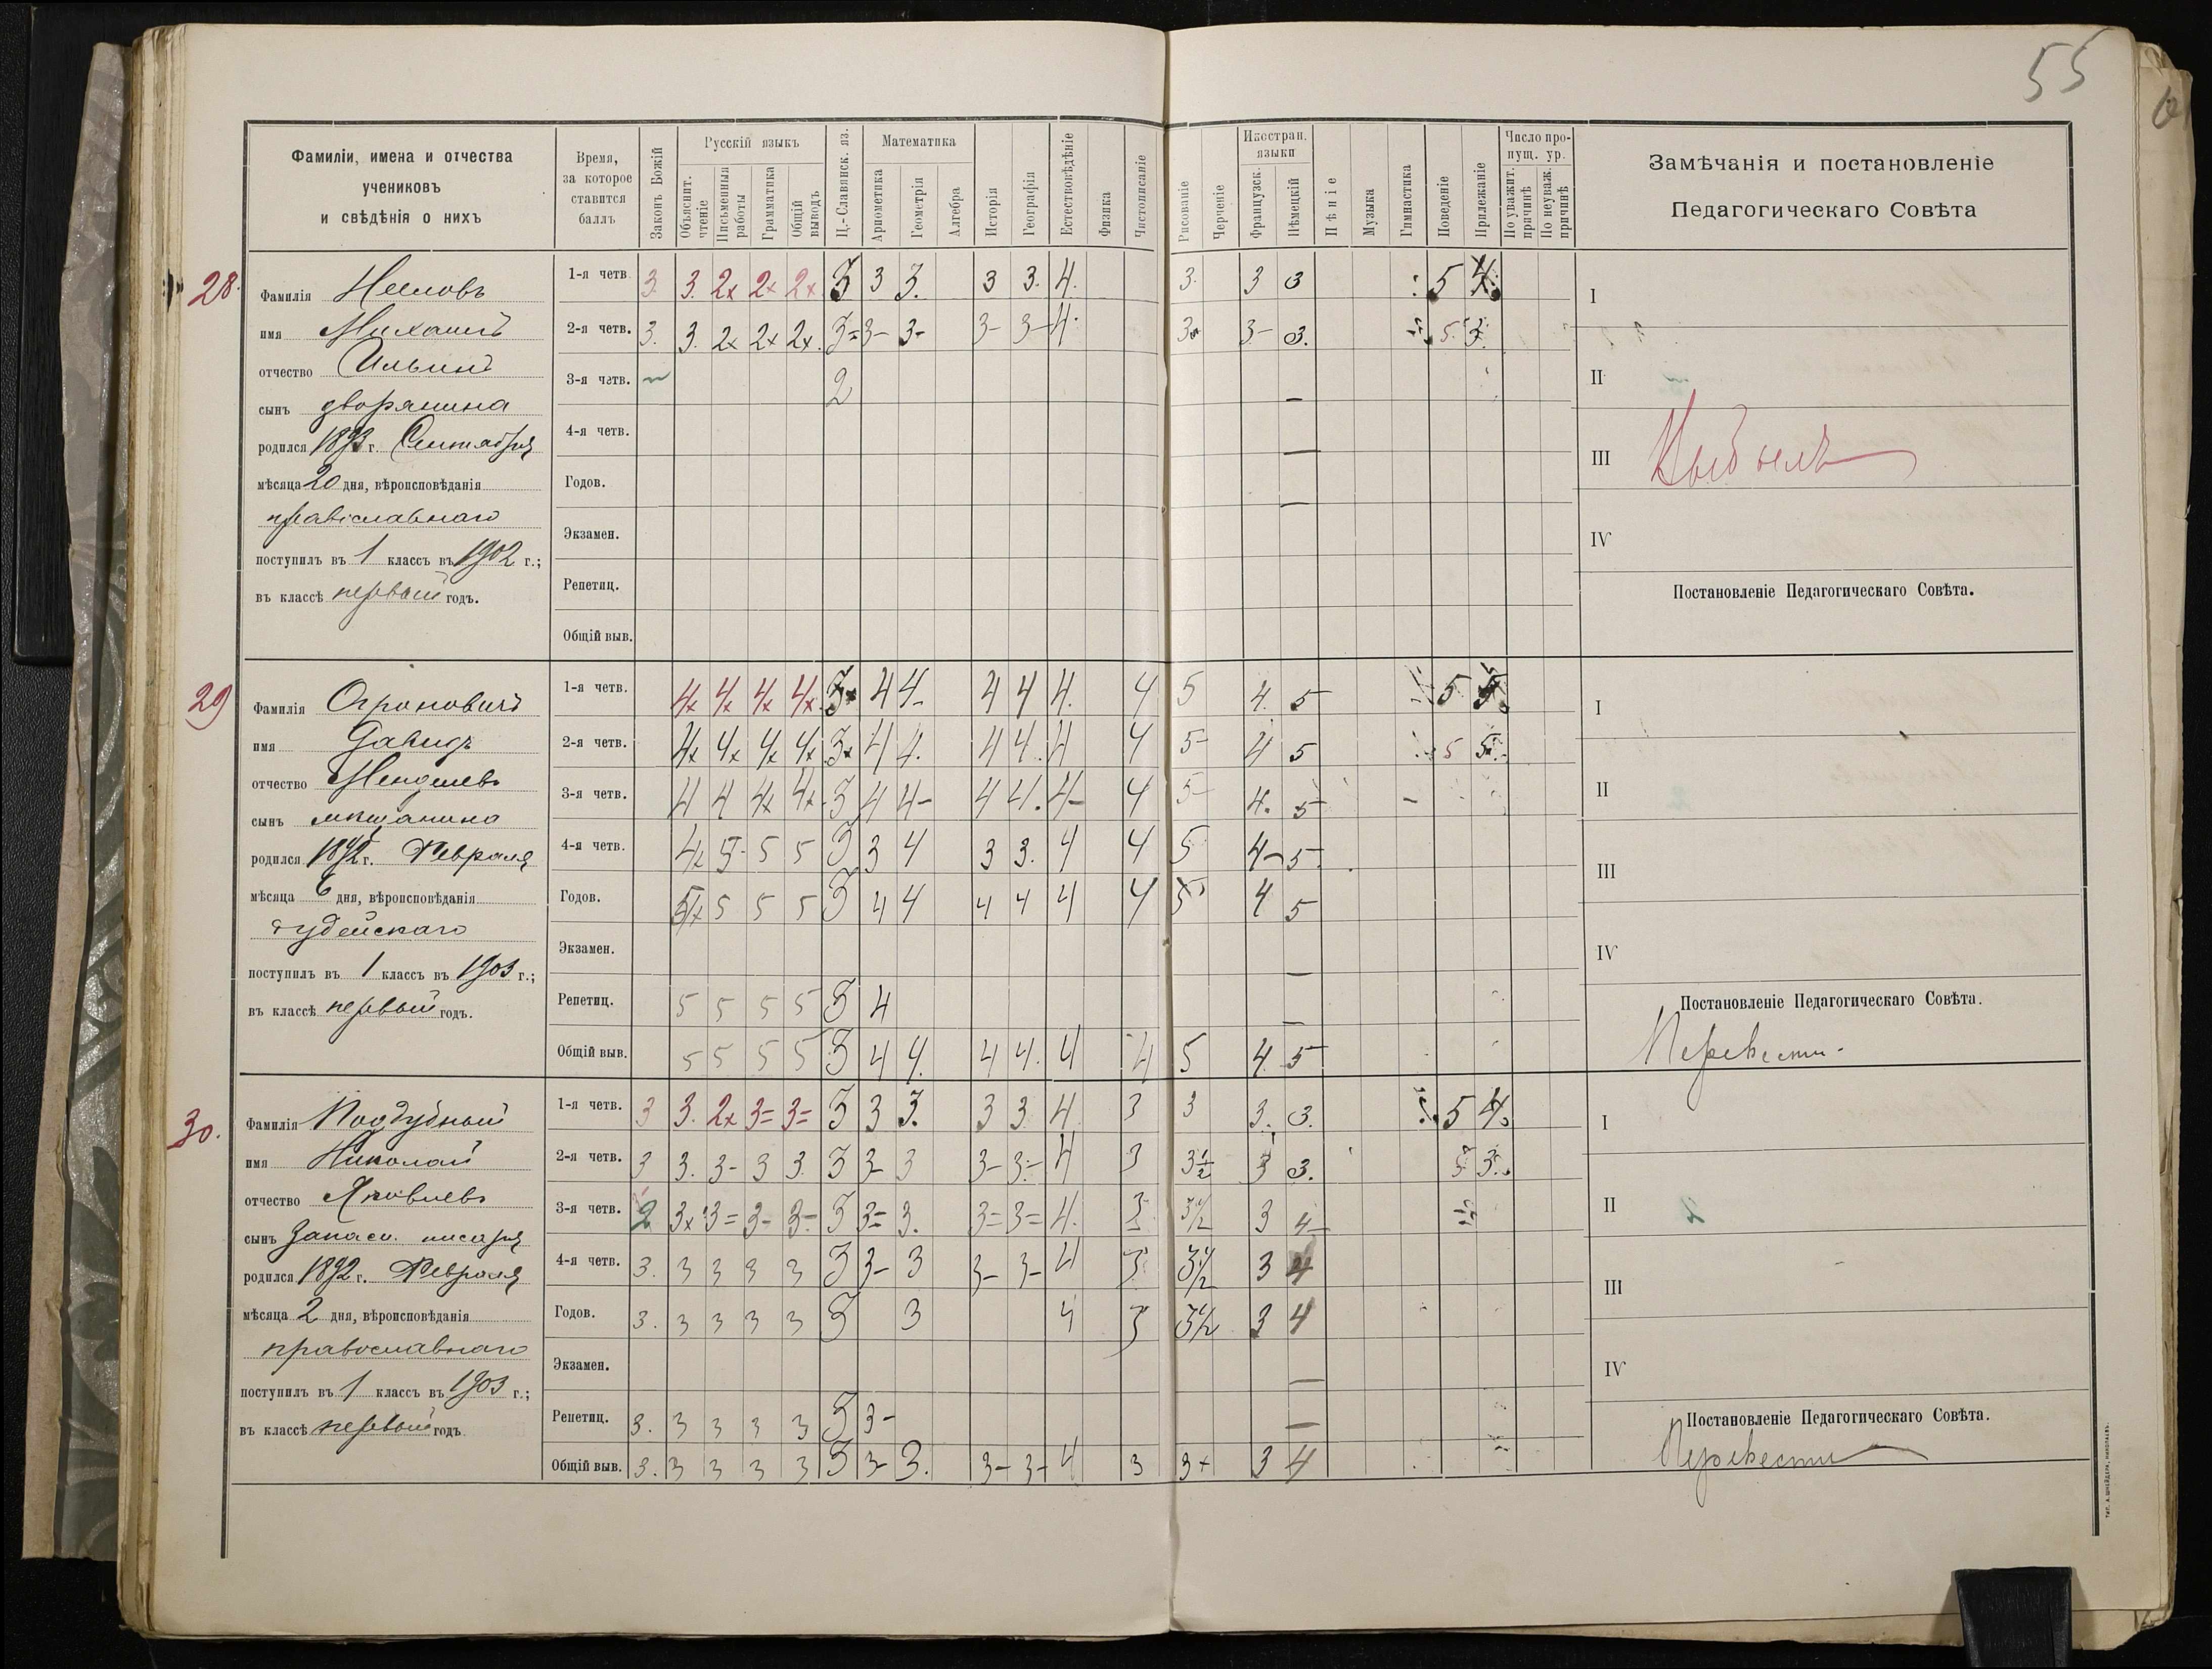 55
Фамиліи, имена и отчества
учениковъ
и свѣдѣнія о нихъ
Время,
за которое
ставится
баллъ
Законъ Божій
Русскій языкъ
Объяснит.
чтеніе
Письменныя
работы
Грамматика
Общій
выводъ
Ц.-Славянск. яз.
Математика
Ариѳметика
Геометрія
Алгебра
Исторія
Географія
Естествовѣдѣніе
Физика
Чистописаніе
Рисованіе
Черченіе
Иностран.
языки
Французск.
Нѣмецкій
Пѣніе
Музыка
Гимнастика
Поведеніе
Прилежаніе
Число про-
пущ. ур.
По уважит.
причинѣ
По неуваж.
причинѣ
Замѣчанія и постановленіе
Педагогическаго Совѣта
28.
Фамилія
имя Михаилъ
отчество Ильинъ
сынъ дворянина
родился 1893 г. Сентября
мѣсяца 20 дня, вѣроисповѣданія
православнаго
поступилъ въ 1 классъ въ 1902 г.;
въ классѣ первый годъ.
1-я четв. 3. 3. 2x 2x 2x 3 3 3. 3 3. 4. 3. 3 3 5 4
2-я четв. 3. 3. 2x 2x 2x. 3= 3- 3- 3- 3- 4. 3 3- 3. 5. 3.
3-я четв. 2
4-я четв.
Годов.
Экзамен.
Репетиц.
Общій выв.
I
II
III Выбылъ
IV
Постановленіе Педагогическаго Совѣта.
29
Фамилія
имя Давидъ
отчество Менделевъ
сынъ мѣщанина
родился 1892 г. Февраля
мѣсяца 6 дня, вѣроисповѣданія
іудейскаго
поступилъ въ 1 классъ въ 1903 г.;
въ классѣ первый годъ.
1-я четв. 4x 4x 4x 4x 3 4 4- 4 4 4. 4 5 4. 5 5 5
2-я четв. 4x 4x 4x 4x 3x 4 4. 4 4. 4 4 5- 4 5 5 5.
3-я четв. 4 4 4x 4x 3 4 4- 4 4. 4- 4 5- 4. 5
4-я четв. 4x 5- 5 5 3 3 4 3 3. 4 4 5 4- 5
Годов. 5 5 5 3 4 4 4 4 4 4 5 4 5
Экзамен.
Репетиц. 5 5 5 5 3 4
Общій выв. 5 5 5 5 3 4 4. 4 4. 4 4 5 4. 5
I
II
III
IV
Постановленіе Педагогическаго Совѣта.
Перевести.
30.
Фамилія Поддубный
имя Николай
отчество Яковлевъ
сынъ Запасн. писаря
родился 1892 г. Февраля
мѣсяца 2 дня, вѣроисповѣданія
православнаго
поступилъ въ 1 классъ въ 1903 г.;
въ классѣ первый годъ
1-я четв. 3 3. 2x 3= 3= 3 3 3. 3 3. 4. 3 3 3. 3. 5 4.
2-я четв. 3 3. 3- 3 3. 3 3- 3 3- 3- 4 3 3½ 3 3. 5 3.
3-я четв. 2 3x 3= 3- 3- 3 3= 3. 3= 3= 4. 3 3½ 3 4-
4-я четв. 3. 3 3 3 3 3 3- 3 3- 3- 4 3 3½ 3 4
Годов. 3. 3 3 3 3 3 3 4 3 3½ 3 4
Экзамен.
Репетиц. 3. 3 3 3 3 3 3-
Общій выв. 3. 3 3 3 3 3 3- 3. 3- 3- 4 3 3+ 3 4
I
II
III
IV
Постановленіе Педагогическаго Совѣта.
Перевести
ТИП. А. ШНЕЙДЕРА, НИКОЛАЕВЪ.